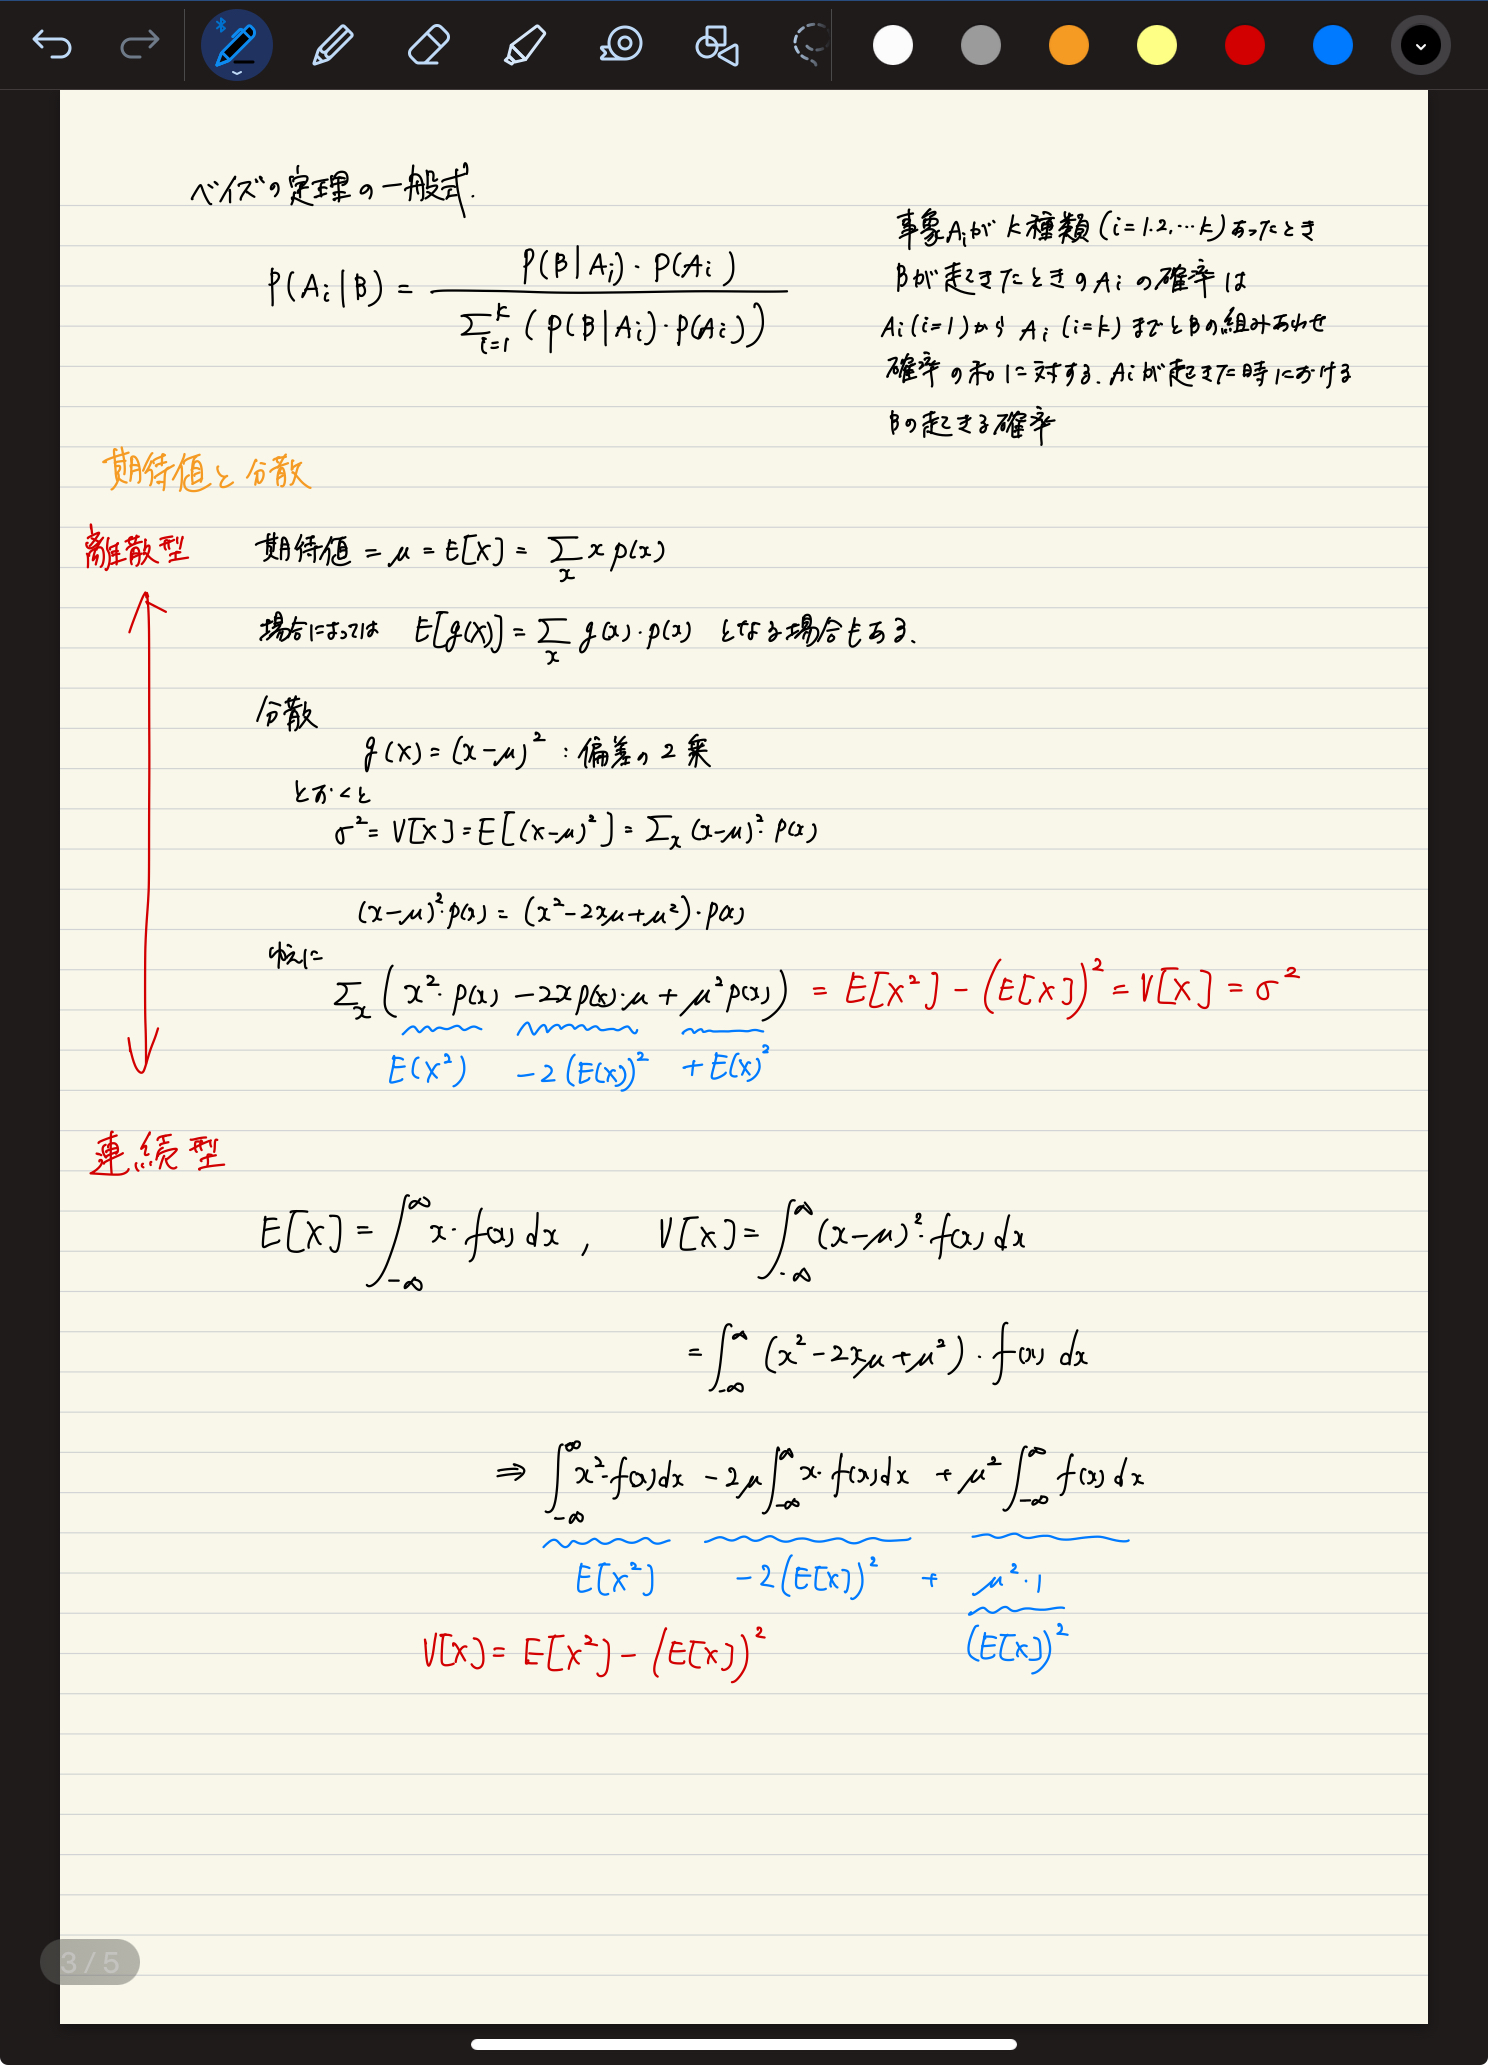 ベイズの定理の一般式.
P(Ai|B) = P(B|Ai)・P(Ai) / Σ_{i=1}^{k} (P(B|Ai)・P(Ai))
事象Aiが k種類 (i=1.2,…k) あったとき
Bが起きたときのAiの確率は
Ai(i=1)から Ai(i=k)までとBの組みあわせ
確率の和に対する. Aiが起きた時における
Bの起きる確率
期待値と分散
離散型
期待値 = μ = E[X] = Σ_x x p(x)
場合によっては E[g(X)] = Σ_x g(x)・p(x) となる場合もある.
分散
g(X) = (x-μ)² : 偏差の2乗
とおくと
σ² = V[X] = E[(X-μ)²] = Σ_x (x-μ)²・P(x)
(x-μ)²・p(x) = (x²-2xμ+μ²)・p(x)
ゆえに
Σ_x (x²・p(x) -2xp(x)・μ + μ²p(x)) = E[X²] - (E[X])² = V[X] = σ²
E(X²) -2(E(X))² + E(X)²
連続型
E[X] = ∫_{-∞}^{∞} x・f(x) dx , V[X] = ∫_{-∞}^{∞} (x-μ)²・f(x) dx
= ∫_{-∞}^{∞} (x²-2xμ+μ²)・f(x) dx
⇒ ∫_{-∞}^{∞} x²・f(x)dx -2μ∫_{-∞}^{∞} x・f(x)dx + μ²∫_{-∞}^{∞} f(x) dx
E[X²] -2(E[X])² + μ²・1
(E[X])²
V[X] = E[X²] - (E[X])²
3/5